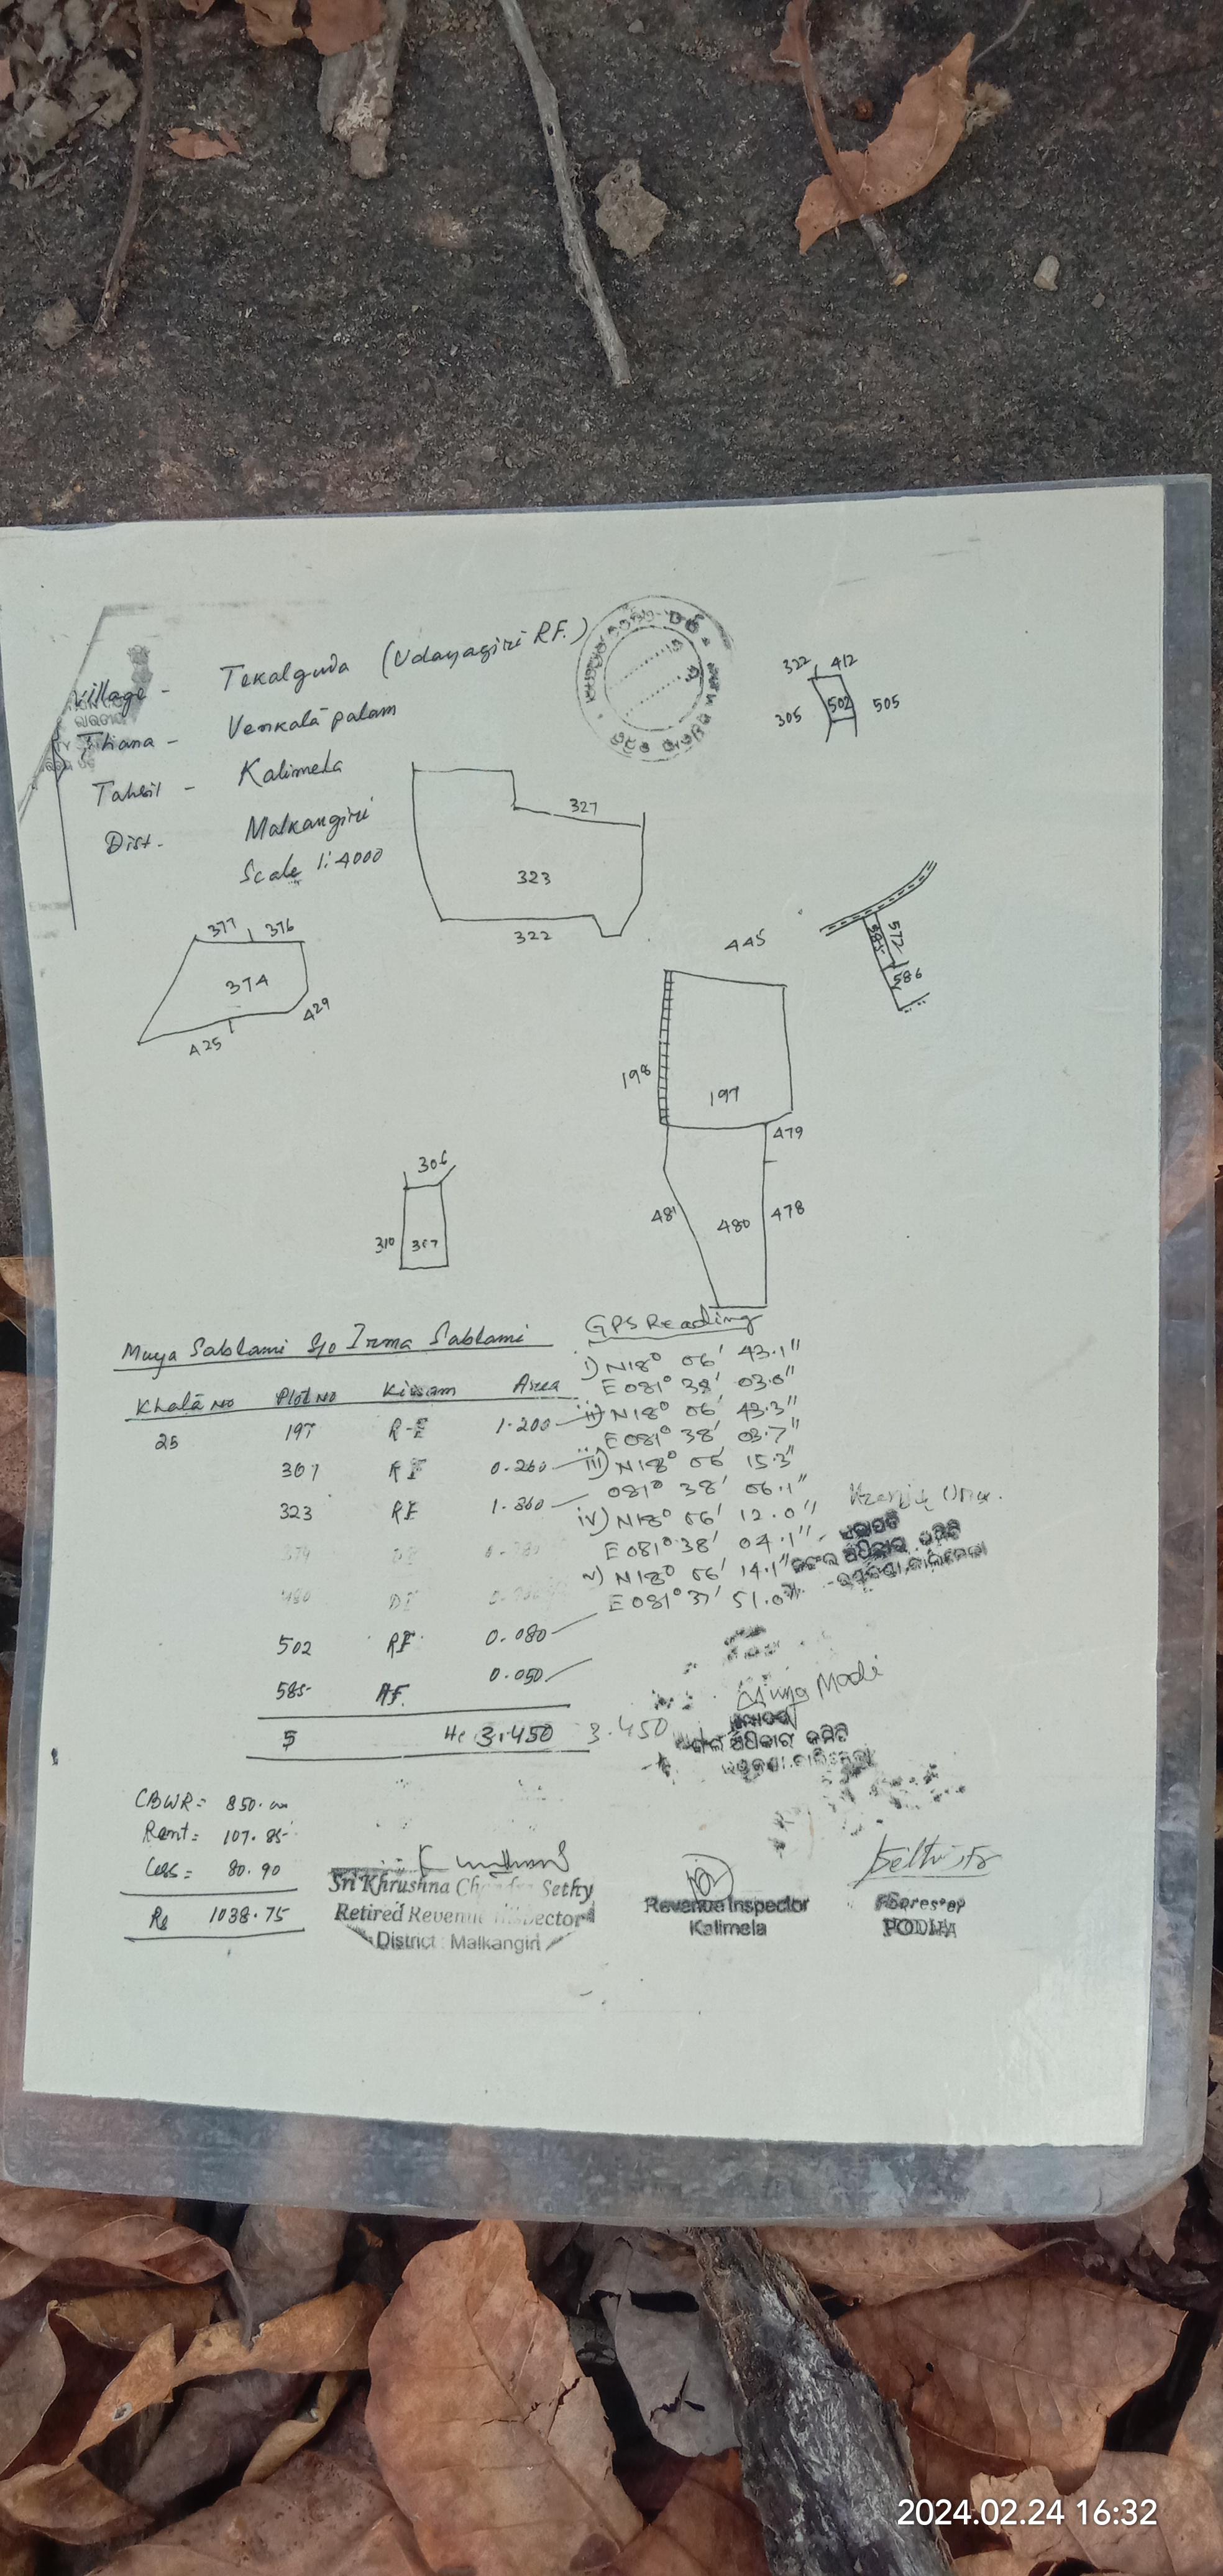 Village - Tekalguda (Udayagiri RF.)
Thana - Venkatapalam
Tahsil - Kalimela
Dist. Malkangiri
Scale 1:4000
322 412
305 502 505
327
323
322
377 376
374
429
425
445
572
585
586
198
197
479
481 480 478
306
310 307
Muya Sablami S/o Irma Sablami
GPS Reading
Khata No Plot No Kissam Area
25 197 R-F 1.200
307 RF 0.260
323 RF 1.860
502 RF 0.080
585 RF. 0.050
5 Hc 3.450 3.450
i) N18° 06' 43.1"
E 081° 38' 03.0"
ii) N18° 06' 43.3"
E 081° 38' 03.7"
iii) N18° 06' 15.3"
081° 38' 06.1"
iv) N18° 06' 12.0"
E 081° 38' 04.1"
v) N18° 06' 14.1"
E 081° 37' 51.0"
ଜଙ୍ଗଲ ଅଧିକାର କମିଟି
ଅଧିକାର କମିଟି
CBWR = 850.00
Rent = 107.85
Cess = 80.90
Rs 1038.75
Sri Khrushna Chandra Sethy
Retired Revenue Inspector
District : Malkangiri
Revenue Inspector
Kalimela
Forester
PODIA
2024.02.24 16:32